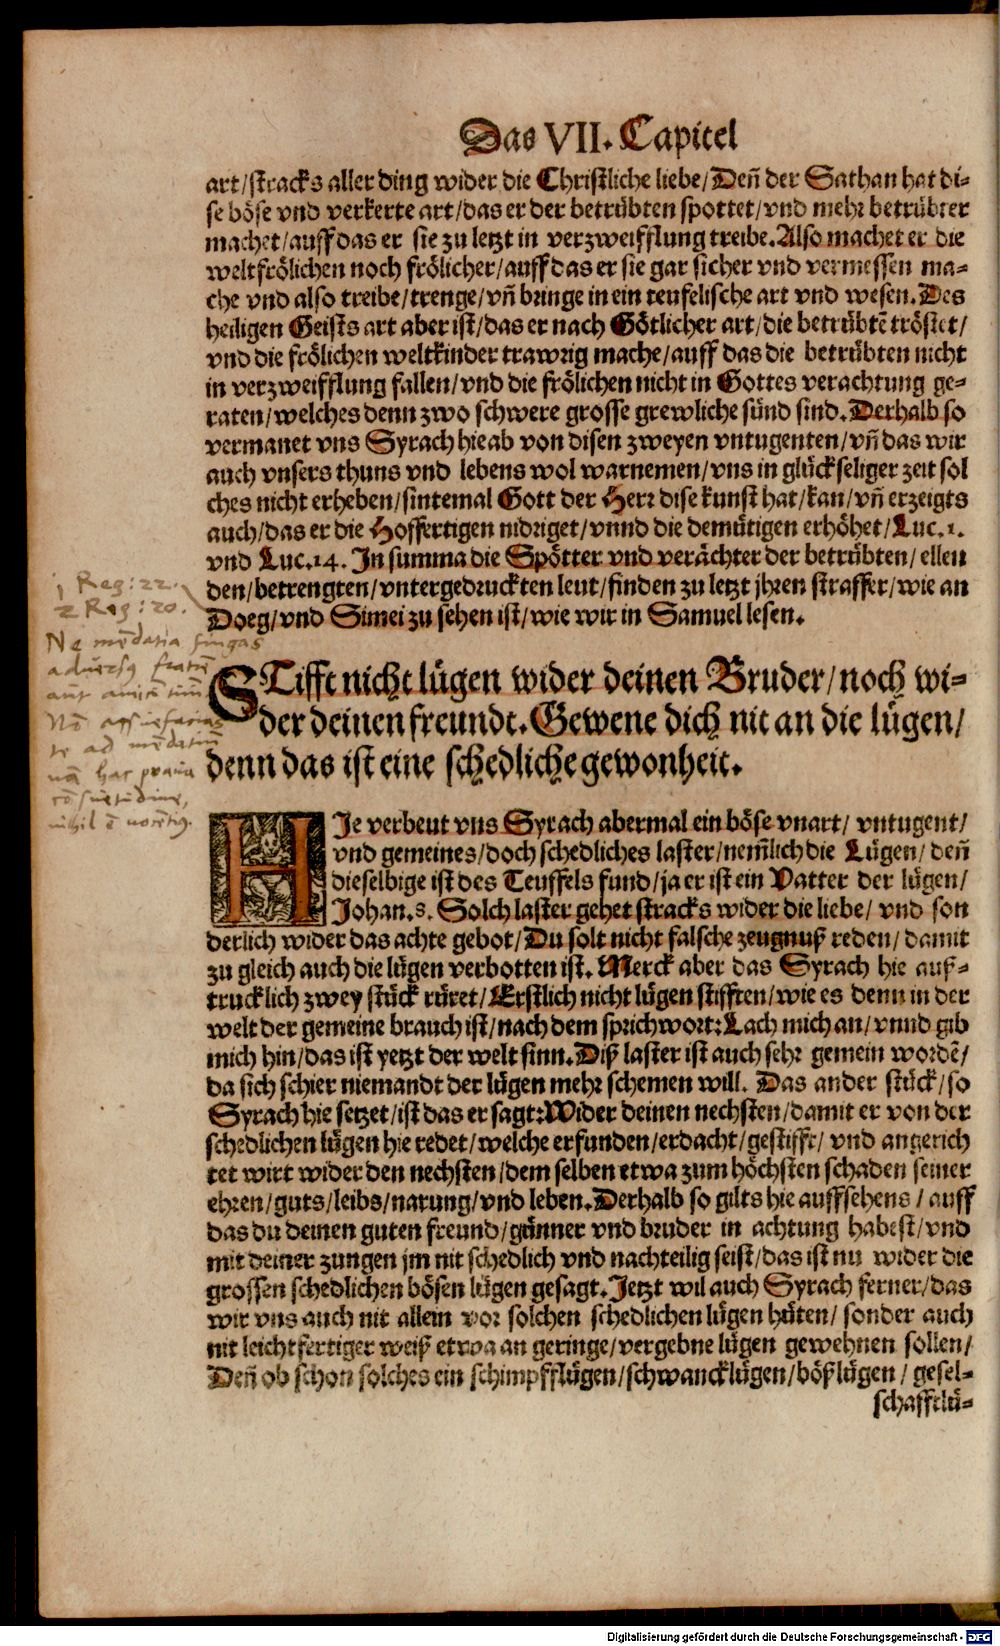 Das VII. Capitel
art/stracks aller ding wider die Christliche liebe/Deñ der Sathan hat di-
se böse vnd verkerte art/das er der betrübten spottet/vnd mehr betrübter
machet/auff das er sie zu letzt in verzweifflung treibe.Also machet er die
weltfrölichen noch frölicher/auff das er sie gar sicher vnd vermessen ma-
che vnd also treibe/trenge/vñ bringe in ein teufelische art vnd wesen.Des
heiligen Geists art aber ist/das er nach Götlicher art/die betrübtē tröstet/
vnd die frölichen weltkinder trawrig mache/auff das die betrübten nicht
in verzweifflung fallen/vnd die frölichen nicht in Gottes verachtung ge-
raten/welches denn zwo schwere grosse grewliche sünd sind.Derhalb so
vermanet vns Syrach hieab von disen zweyen vntugenten/vñ das wir
auch vnsers thuns vnd lebens wol warnemen/vns in glückseliger zeit sol
ches nicht erheben/sintemal Gott der Herr dise kunst hat/kan/vñ erzeigts
auch/das er die Hoffertigen nidriget/vnnd die demütigen erhöhet/Luc.1.
vnd Luc.14. In summa die Spötter vnd verächter der betrübten/ellen
den/betrengten/vntergedruckten leut/finden zu letzt jhren straffer/wie an
Doeg/vnd Simei zu sehen ist/wie wir in Samuel lesen.
1 Reg: 22.
2 Reg: 20.
Ne mēdatia fingas
adversꝫ fratrē
aut amicū tuū.
Nō assuefacias
te ad mēdatiū
nā hac praua
cōsuetudine,
nihil ē nocētiꝫ.
STifft nicht lügen wider deinen Bruder/noch wi-
der deinen freundt.Gewene dich nit an die lügen/
denn das ist eine schedliche gewonheit.
HIe verbeut vns Syrach abermal ein böse vnart/ vntugent/
vnd gemeines/doch schedliches laster/nem̃lich die Lügen/ deñ
dieselbige ist des Teuffels fund/ja er ist ein Vatter der lügen/
Johan.8. Solch laster gehet stracks wider die liebe/ vnd son
derlich wider das achte gebot/Du solt nicht falsche zeugnuß reden/ damit
zu gleich auch die lügen verbotten ist. Merck aber das Syrach hie auß-
trucklich zwey stück rüret/Erstlich nicht lügen stifften/wie es denn in der
welt der gemeine brauch ist/nach dem sprichwort:Lach mich an/vnnd gib
mich hin/das ist yetzt der welt sinn.Diß laster ist auch sehr gemein wordē/
da sich schier niemandt der lügen mehr schemen will. Das ander stück/so
Syrach hie setzet/ist das er sagt:Wider deinen nechsten/damit er von der
schedlichen lügen hie redet/welche erfunden/erdacht/gestifft/ vnd angerich
tet wirt wider den nechsten/dem selben etwa zum höchsten schaden seiner
ehren/guts/leibs/narung/vnd leben.Derhalb so gilts hie auffsehens/auff
das du deinen guten freund/gönner vnd bruder in achtung habest/vnd
mit deiner zungen jm nit schedlich vnd nachteilig seist/das ist nu wider die
grossen schedlichen bösen lügen gesagt.Jetzt wil auch Syrach ferner/das
wir vns auch nit allein vor solchen schedlichen lügen hüten/ sonder auch
nit leichtfertiger weiß etwa an geringe/vergebne lügen gewehnen sollen/
Deñ ob schon solches ein schimpfflügen/schwancklügen/bößlügen/ gesel-
schafftlü-
Digitalisierung gefördert durch die Deutsche Forschungsgemeinschaft - DFG